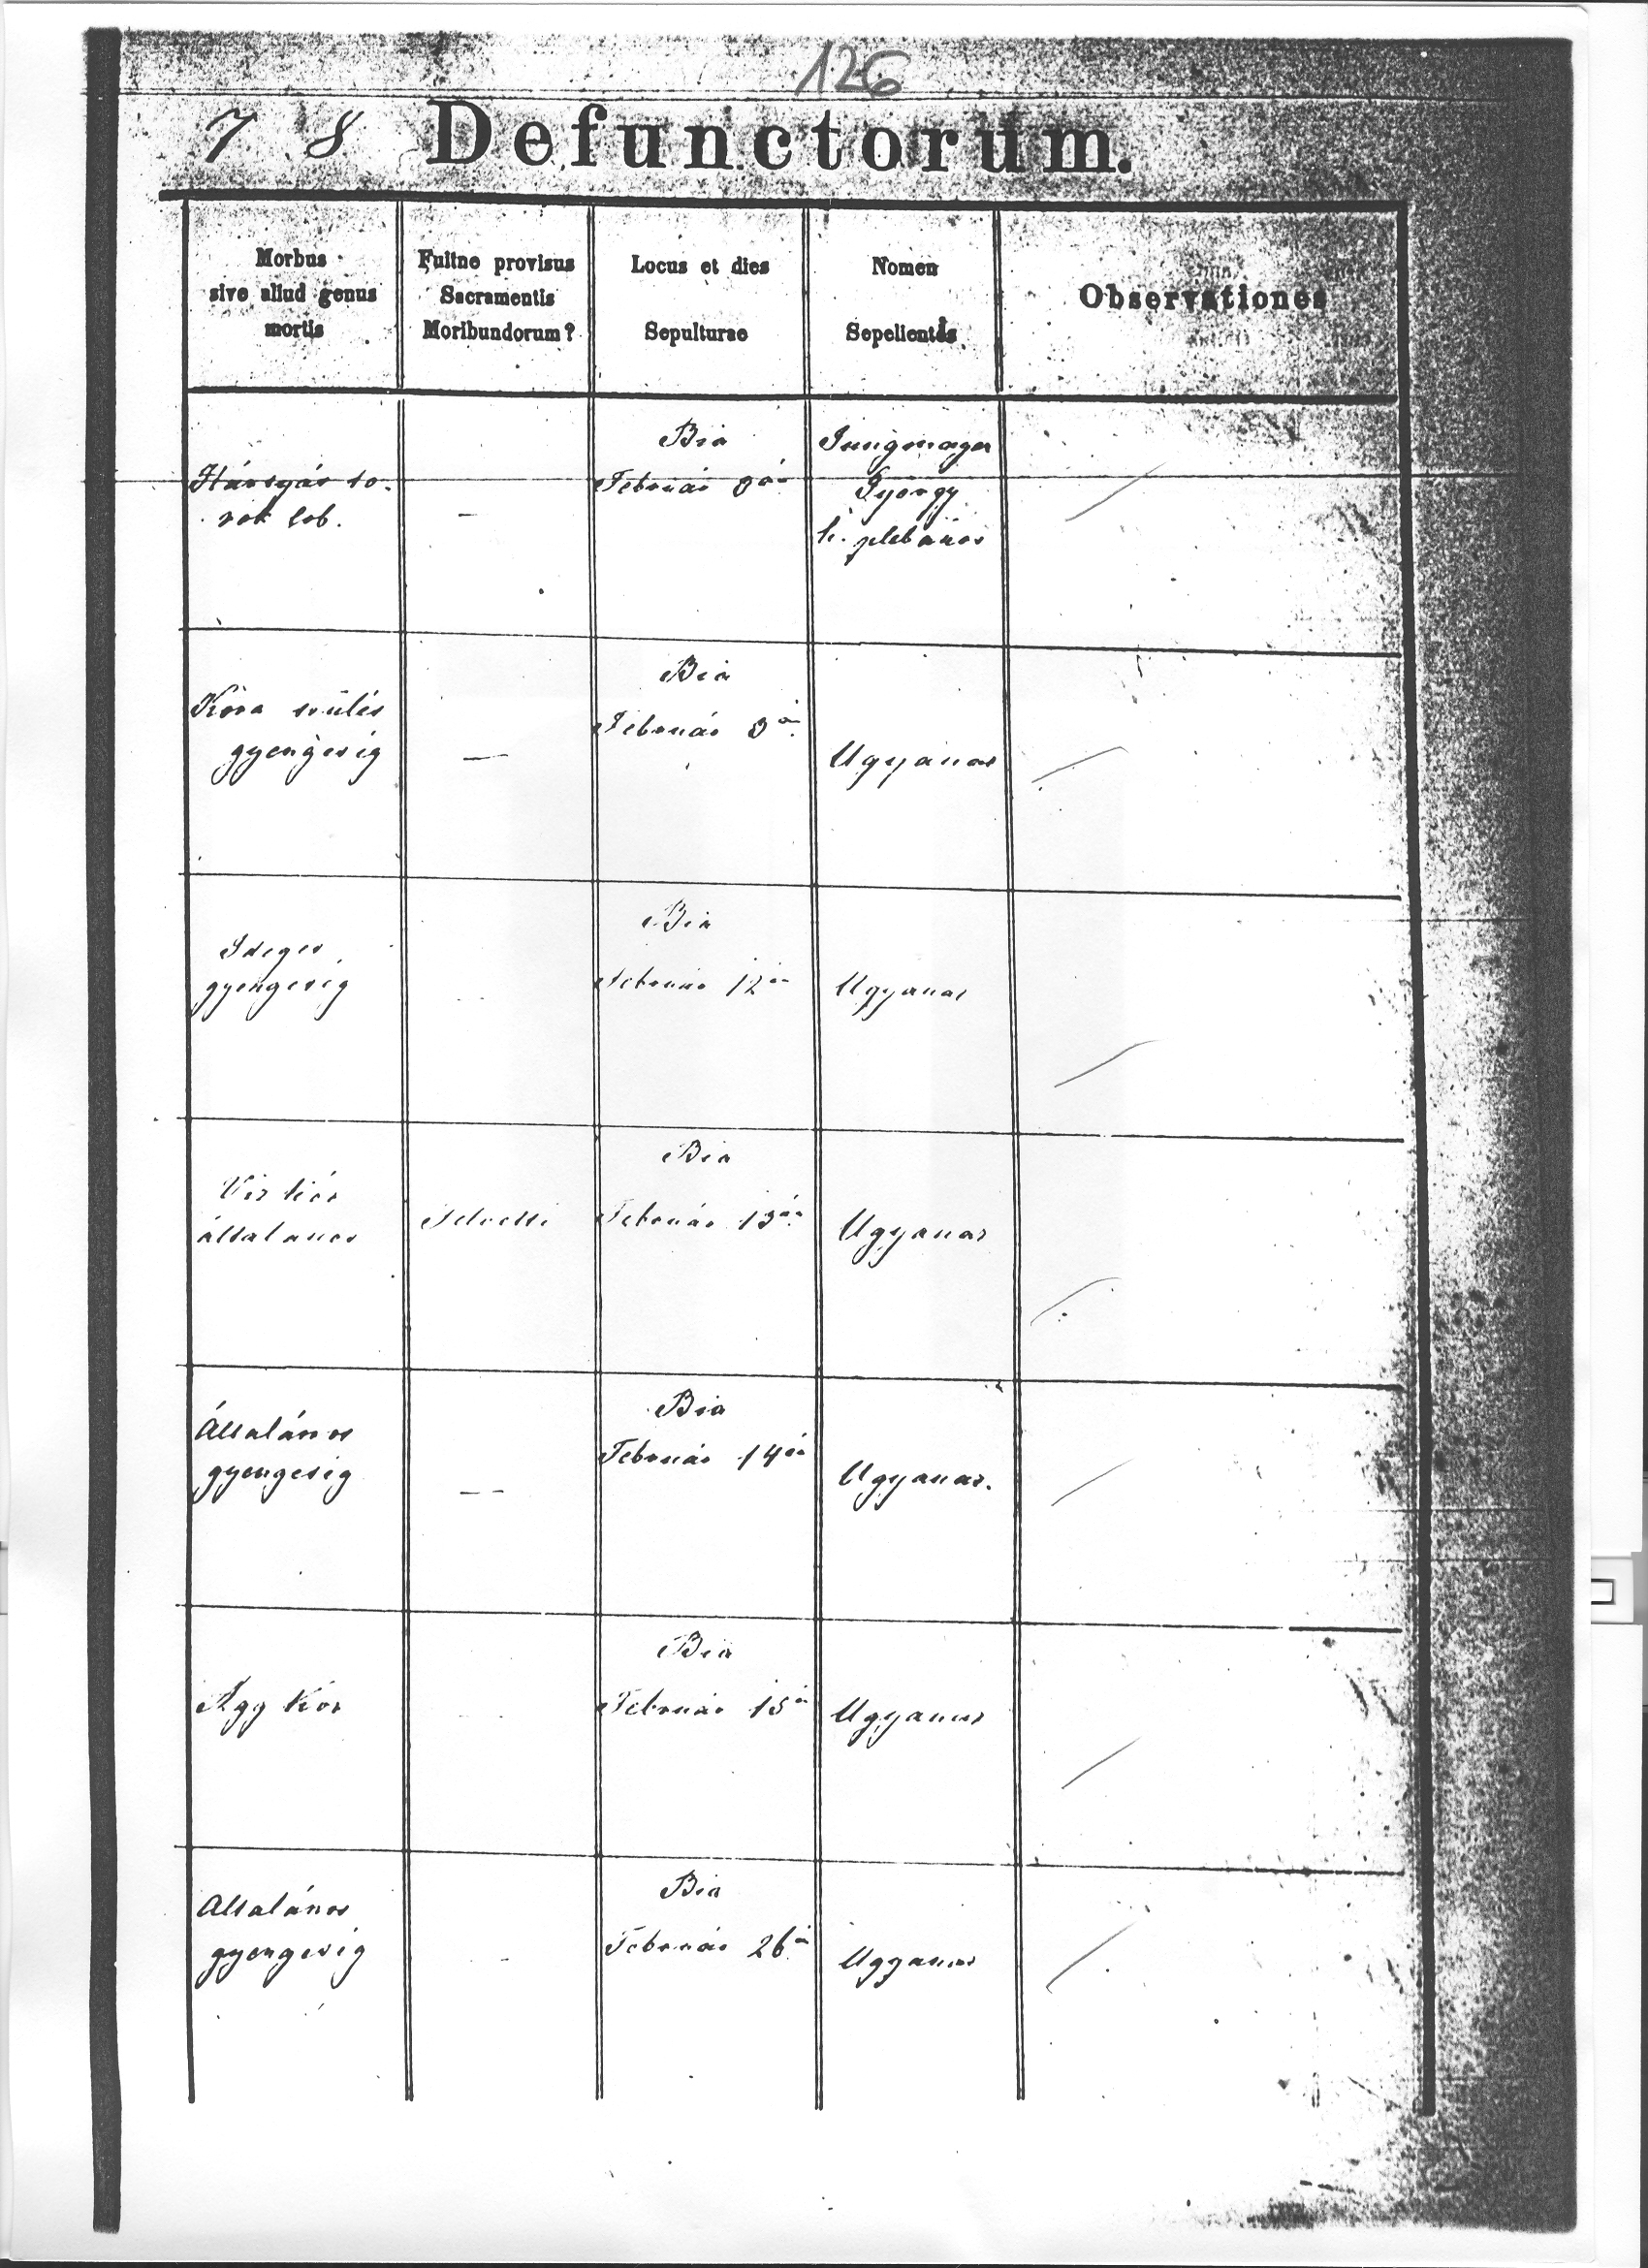 126
7 8 Defunctorum.
Morbus
sive aliud genus
mortis
Fuitne provisus
Sacramentis
Moribundorum?
Locus et dies
Sepulturae
Nomen
Sepelientis
Observationes
Hártyás to-
rok lob.
—
Bia
Február 8án
Jungmayer
György
h. plebános
Kora szülés
gyengeség
—
Bia
Február
Ugyanaz
Ideges
gyengeség
Bia
Február 12én
Ugyanaz
Viz kór
általános
Felvette
Bia
Február 13án
Ugyanaz
Általános
gyengeség
—
Bia
Február 14én
Ugyanaz.
Agy kór
Bia
Február 15én
Ugyanaz
Általános
gyengeség
-
Bia
Február 26án
Ugyanaz